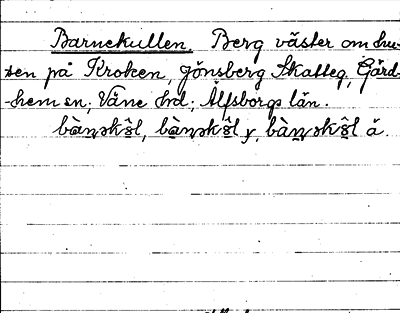 Barnekullen. Berg väster om hu-
sen på Kroken, Jönsberg Skatteg, Gärd-
hem sn; Väne hd; Älfsborgs län.
bàṇəkȫl, bàṇəkȫl y, bàṇəkȫl å.